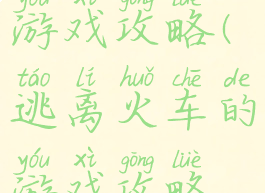 yóu xì gōng lüè
游戏攻略(
táo lí huǒ chē de
逃离火车的
yóu xì gōng lüè
游戏攻略